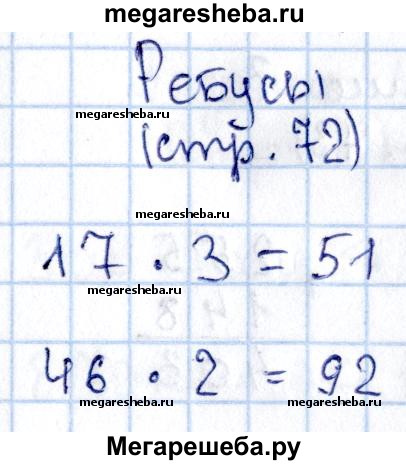 megaresheba.ru
Ребусы
megaresheba.ru
(стр. 72)
megaresheba.ru
17 · 3 = 51
megaresheba.ru
46 · 2 = 92
megaresheba.ru megaresheba.ru
Мегарешеба.ру